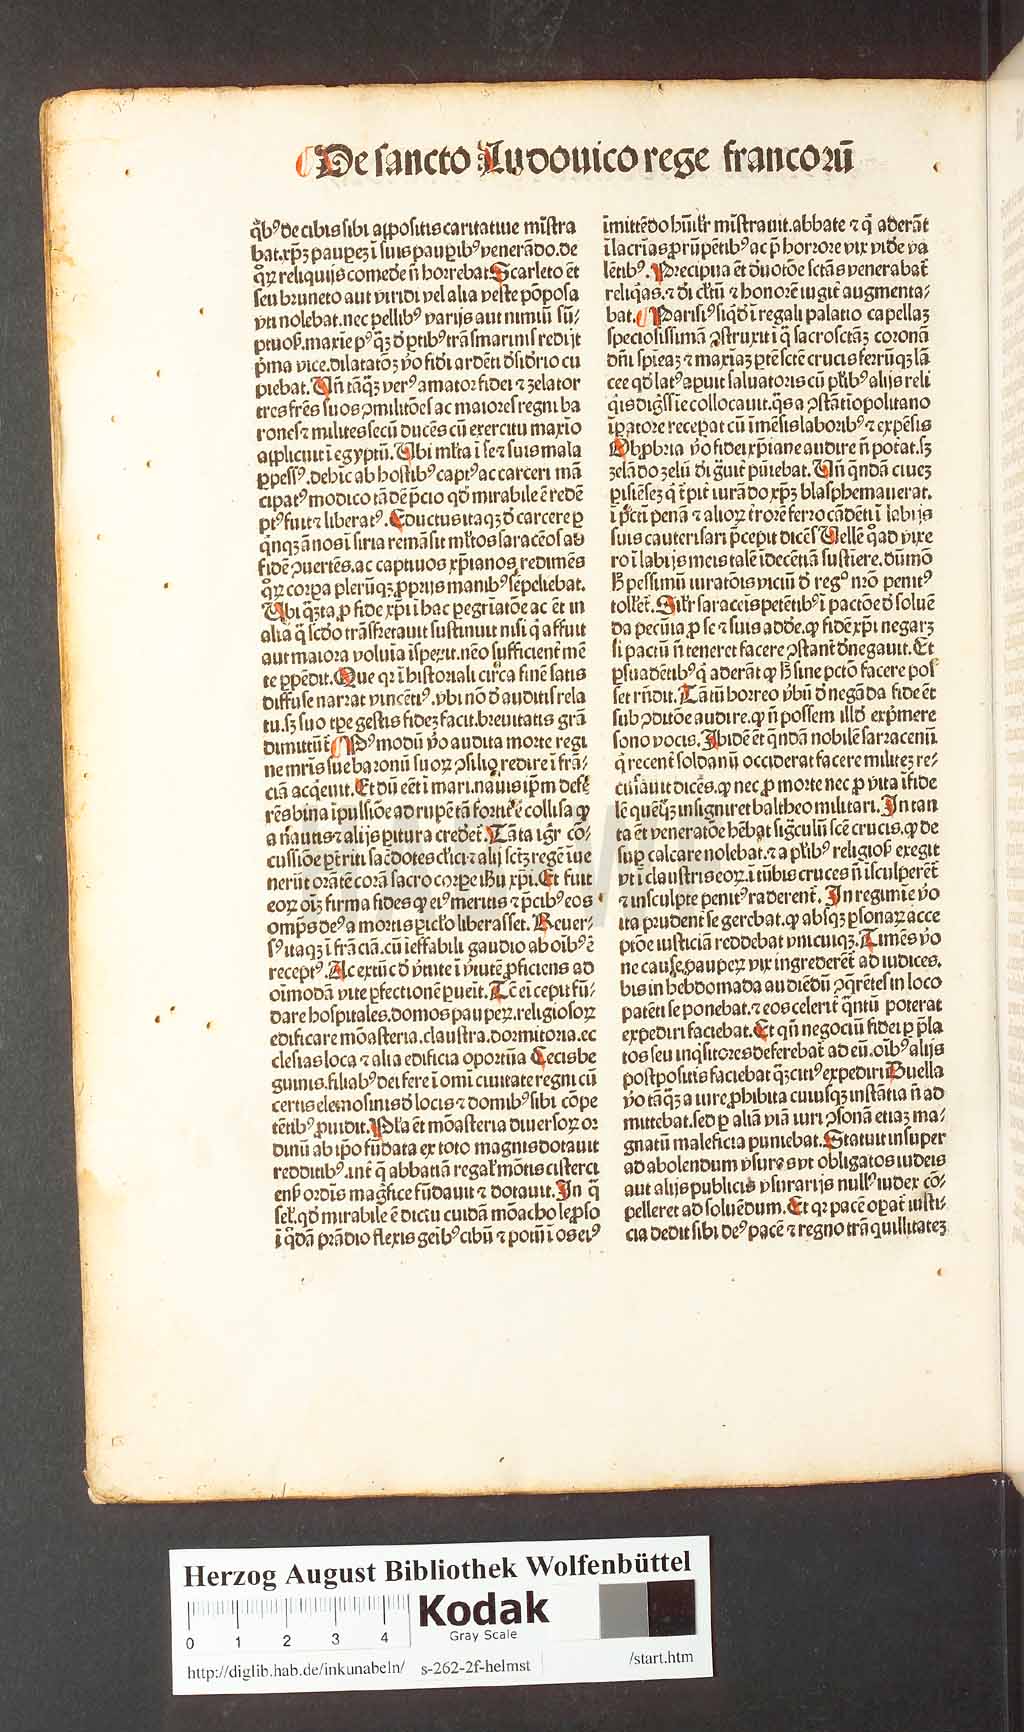 De sancto Ludouico rege francorū
q̄bꝰ de cibis sibi appositis caritatiue mīstra
bat. xp̄ꝫ pauꝑeꝫ ī suis pauꝑibꝰ venerādo. de
qͦꝝ reliquijs comedē n̄ horrebat. Scarleto ēt
seu bruneto aut viridi vel alia veste pōposa
vti nolebat. nec pellibꝰ varijs aut nimiū sū-
ptuos̄. maxie pꝰqꝫ d̓ ptibꝰ trāsmarinis redijt
p̄ma vice. dilatatōꝫ v̓o fidi ardēti d̓siderio cu
piebat. Vn̄ tāqꝫ verꝰ amator fidei ⁊ zelator
tres fr̄es suos ꝯmilitōes ac maiores regni ba
rones ⁊ milites secū ducēs cū exercitu maxīo
applicuit ī egyptū. Vbi ml̓ta ī se ⁊ suis mala
ꝑpessꝰ. dehīc ab hostibꝰ captꝰ ac carceri mā
cipatꝰ modico tādē p̄cio qd̓ mirabile ē redē
ptꝰ fuit ⁊ liberatꝰ. Eductus itaqꝫ d̓ carcere ꝑ
qͥnqꝫ ānos ī siria remāsit ml̓tos saracēos ad
fidē ꝯuertēs. ac captiuos xp̄ianos redimēs
qͦꝝ corꝑa plerūqꝫ ꝓprijs manibꝰ sepeliebat.
Vbi qͣꝫta ꝓ fide xp̄i ī hac ꝑegrīatōe ac ēt in
alia q̄ scd̓o trāsfretauit sustinuit nisi q̓ affuit
aut maiora voluīa īspexit. nēo sufficient̓ mē
te ꝑpēdit. Que qr ī historiali circa finē satis
diffuse narrat vincētiꝰ. vbi nō d̓ auditis rela
tu. sꝫ suo tꝑe gestis fideꝫ facit. breuitatis grā
dimittūt̄. Ad hꝰ modū v̓o audita morte regi
ne mr̄is sue baronū suoꝝ ꝯsilio redire ī frā-
ciā acqͥeuit. Et dū eēt ī mari. nauis ip̄m defe
rēs bina īpulsiōe ad rupē tā fortit̓ ē collisa ꝙ
a nautis ⁊ alijs pitura credet̄. Tāta igr̄ cō-
cussiōe ꝑt̓riti sac̓dotes cl̓ici ⁊ alij scīꝫ regē īue
nerūt orātē corā sacro corꝑe ih̄u xp̄i. Et fuit
eoꝝ oīꝫ firma fides ꝙ eiꝰ meritis ⁊ p̄cibꝰ eos
omp̄s deꝰ a mortis picl̓o liberasset. Reuer-
sꝰ itaqꝫ ī frāciā. cū ieffabili gaudio ab oībꝰ ē
receptꝰ. Ac extūc d̓ v̓tute ī v̓tutē ꝓficiens ad
oīmodā vite ꝑfectionē ꝑueīt. Tc̄ ei cepit fū-
dare hospitales. domos pauꝑeꝝ. religiosoꝝ
edificare mōasteria. claustra. dormitoria. ec
clesias loca ⁊ alia edificia oportūa Cecis be
guinis. filiabꝰ dei fere ī omī ciuitate regni cū
certis elemosinis d̓ locis ⁊ domibꝰ sibi cōpe
tētibꝰ ꝓuidit. Pl̓a ēt mōasteria diuersoꝝ or
dinū ab ip̄o fūdata ex toto magnis dotauit
redditibꝰ. int̓ q̄ abbatiā regal̓ mōtis cisterci
ensꝭ ordīs magīfice fūdauit ⁊ dotauit. In q̄
sel̓. qd̓ mirabile ē dictu cuidā mōacho lep̓so
ī qͦdā prādio flexis geībꝰ cibū ⁊ potū ī os eiꝰ
īmittēdo hūil̓r mīstrauit. abbate ⁊ q̓ aderāt
ī lacrīas ꝓrūpētibꝰ ac p̄ horrore vix vidē va
lētibꝰ. Precipua ēt d̓uotōe sc̄tās venerabat̄
reliqͥas. ⁊ d̓i cl̓tū ⁊ honorē iugit̓ augmenta-
bat. Parisiꝰ siqͥd̓ ī regali palatio capellaꝫ
speciosissimā ꝯstruxit ī q̄ sacrosctāꝫ coronā
dn̄i spīeaꝫ ⁊ maxiaꝫ ptē scte crucis ferrūqꝫ lā
cee qd̓ latꝰ aꝑuit saluatoris cū pl̓ibꝰ alijs reli
qͥis digss̄ie collocauit. qͣs a ꝯstātiopolitano
īpatore recepat cū īmēsis laboribꝰ ⁊ expēsis
Obꝓbria v̓o fidei xp̄iane audire n̄ potat̄. sꝫ
zelādo zelū d̓i grauit̓ pūiebat. Vn̄ qndā ciueꝫ
pisiēseꝫ q̓ t̓pit̓ iurādo xp̄ꝫ blasphemauerat.
ī pctī penā ⁊ alioꝝ t̓rorē ferro cādēti ī labijs
suis cauterisari p̄cepit dicēs Uellē qͦad vixe
ro ī labijs meis talē īdecētiā sustiere. dūmō
h̓ pessimū iuratōis viciū d̓ regⁿ nr̄o penitꝰ
tolleret̄. Sil̓r saracēis petētibꝰ ī pactōe d̓ soluē
da pecūia ꝓ se ⁊ suis addē. ꝙ fidē xp̄i negarꝫ
si pactū n̄ teneret facere ꝯstant̓ d̓negauit. Et
ꝑsuadētibꝰ q̓ aderāt ꝙ h̓ sine pctō facere pos
set rn̄dit. Tātū horreo v̓bū d̓ negāda fide ēt
sub ꝯditōe audire. ꝙ n̄ possem illd̓ exp̄mere
sono vocis. Ibidē ēt qndā nobilē sarracenū
q̓ recent̓ soldanū occiderat facere militeꝫ re-
cusauit dicēs. ꝙ nec ꝓ morte nec ꝓ vita īfide
lē quēqͣꝫ insigniret baltheo militari. In tan
ta ēt veneratōe hēbat sigculū scē crucis. ꝙ de
suꝑ calcare nolebat. ⁊ a pl̓ibꝰ religiosꝭ exegit
vt ī claustris eoꝝ. ī tūbis cruces n̄ īsculperēt̄
⁊ insculpte penitꝰ raderent̄. In regimīe v̓o
ita prudent̓ se gerebat. ꝙ absqꝫ ꝑsonaꝝ acce
ptōe iusticiā reddebat vnicuiqꝫ. Timēs v̓o
ne cause. pauꝑeꝝ vix ingrederēt̄ ad iudices.
bis in hebdomada audiēdū ꝯqͥrētes in loco
patēti se ponebat. ⁊ eos celerit̓ qntū poterat
expediri faciebat. Et qn̄ negociū fidei ꝑ p̄la
tos seu inqͥsitores deferebat̄ ad eū. oībꝰ alijs
postpositis faciebat qͣꝫcitiꝰ expediri Duella
v̓o tāqͣꝫ a iure ꝓhibita cuiusqꝫ instātia n̄ ad
mittebat. sed ꝑ aliā viā iuri ꝯsonā etiaꝫ ma-
gnatū maleficia puniebat. Statuit insuper
ad abolendum vsuras vt obligatos iudeis
aut alijs publicis vsurarijs nullꝰ iudex cō-
pelleret ad soluēdum. Et qr pacē opat̄ iusti-
cia dedit sibi deꝰ pacē ⁊ regno trāquillitateꝫ
Herzog August Bibliothek Wolfenbüttel
0 1 2 3 4
Kodak
Gray Scale
http://diglib.hab.de/inkunabeln/ s-262-2f-helmst /start.htm